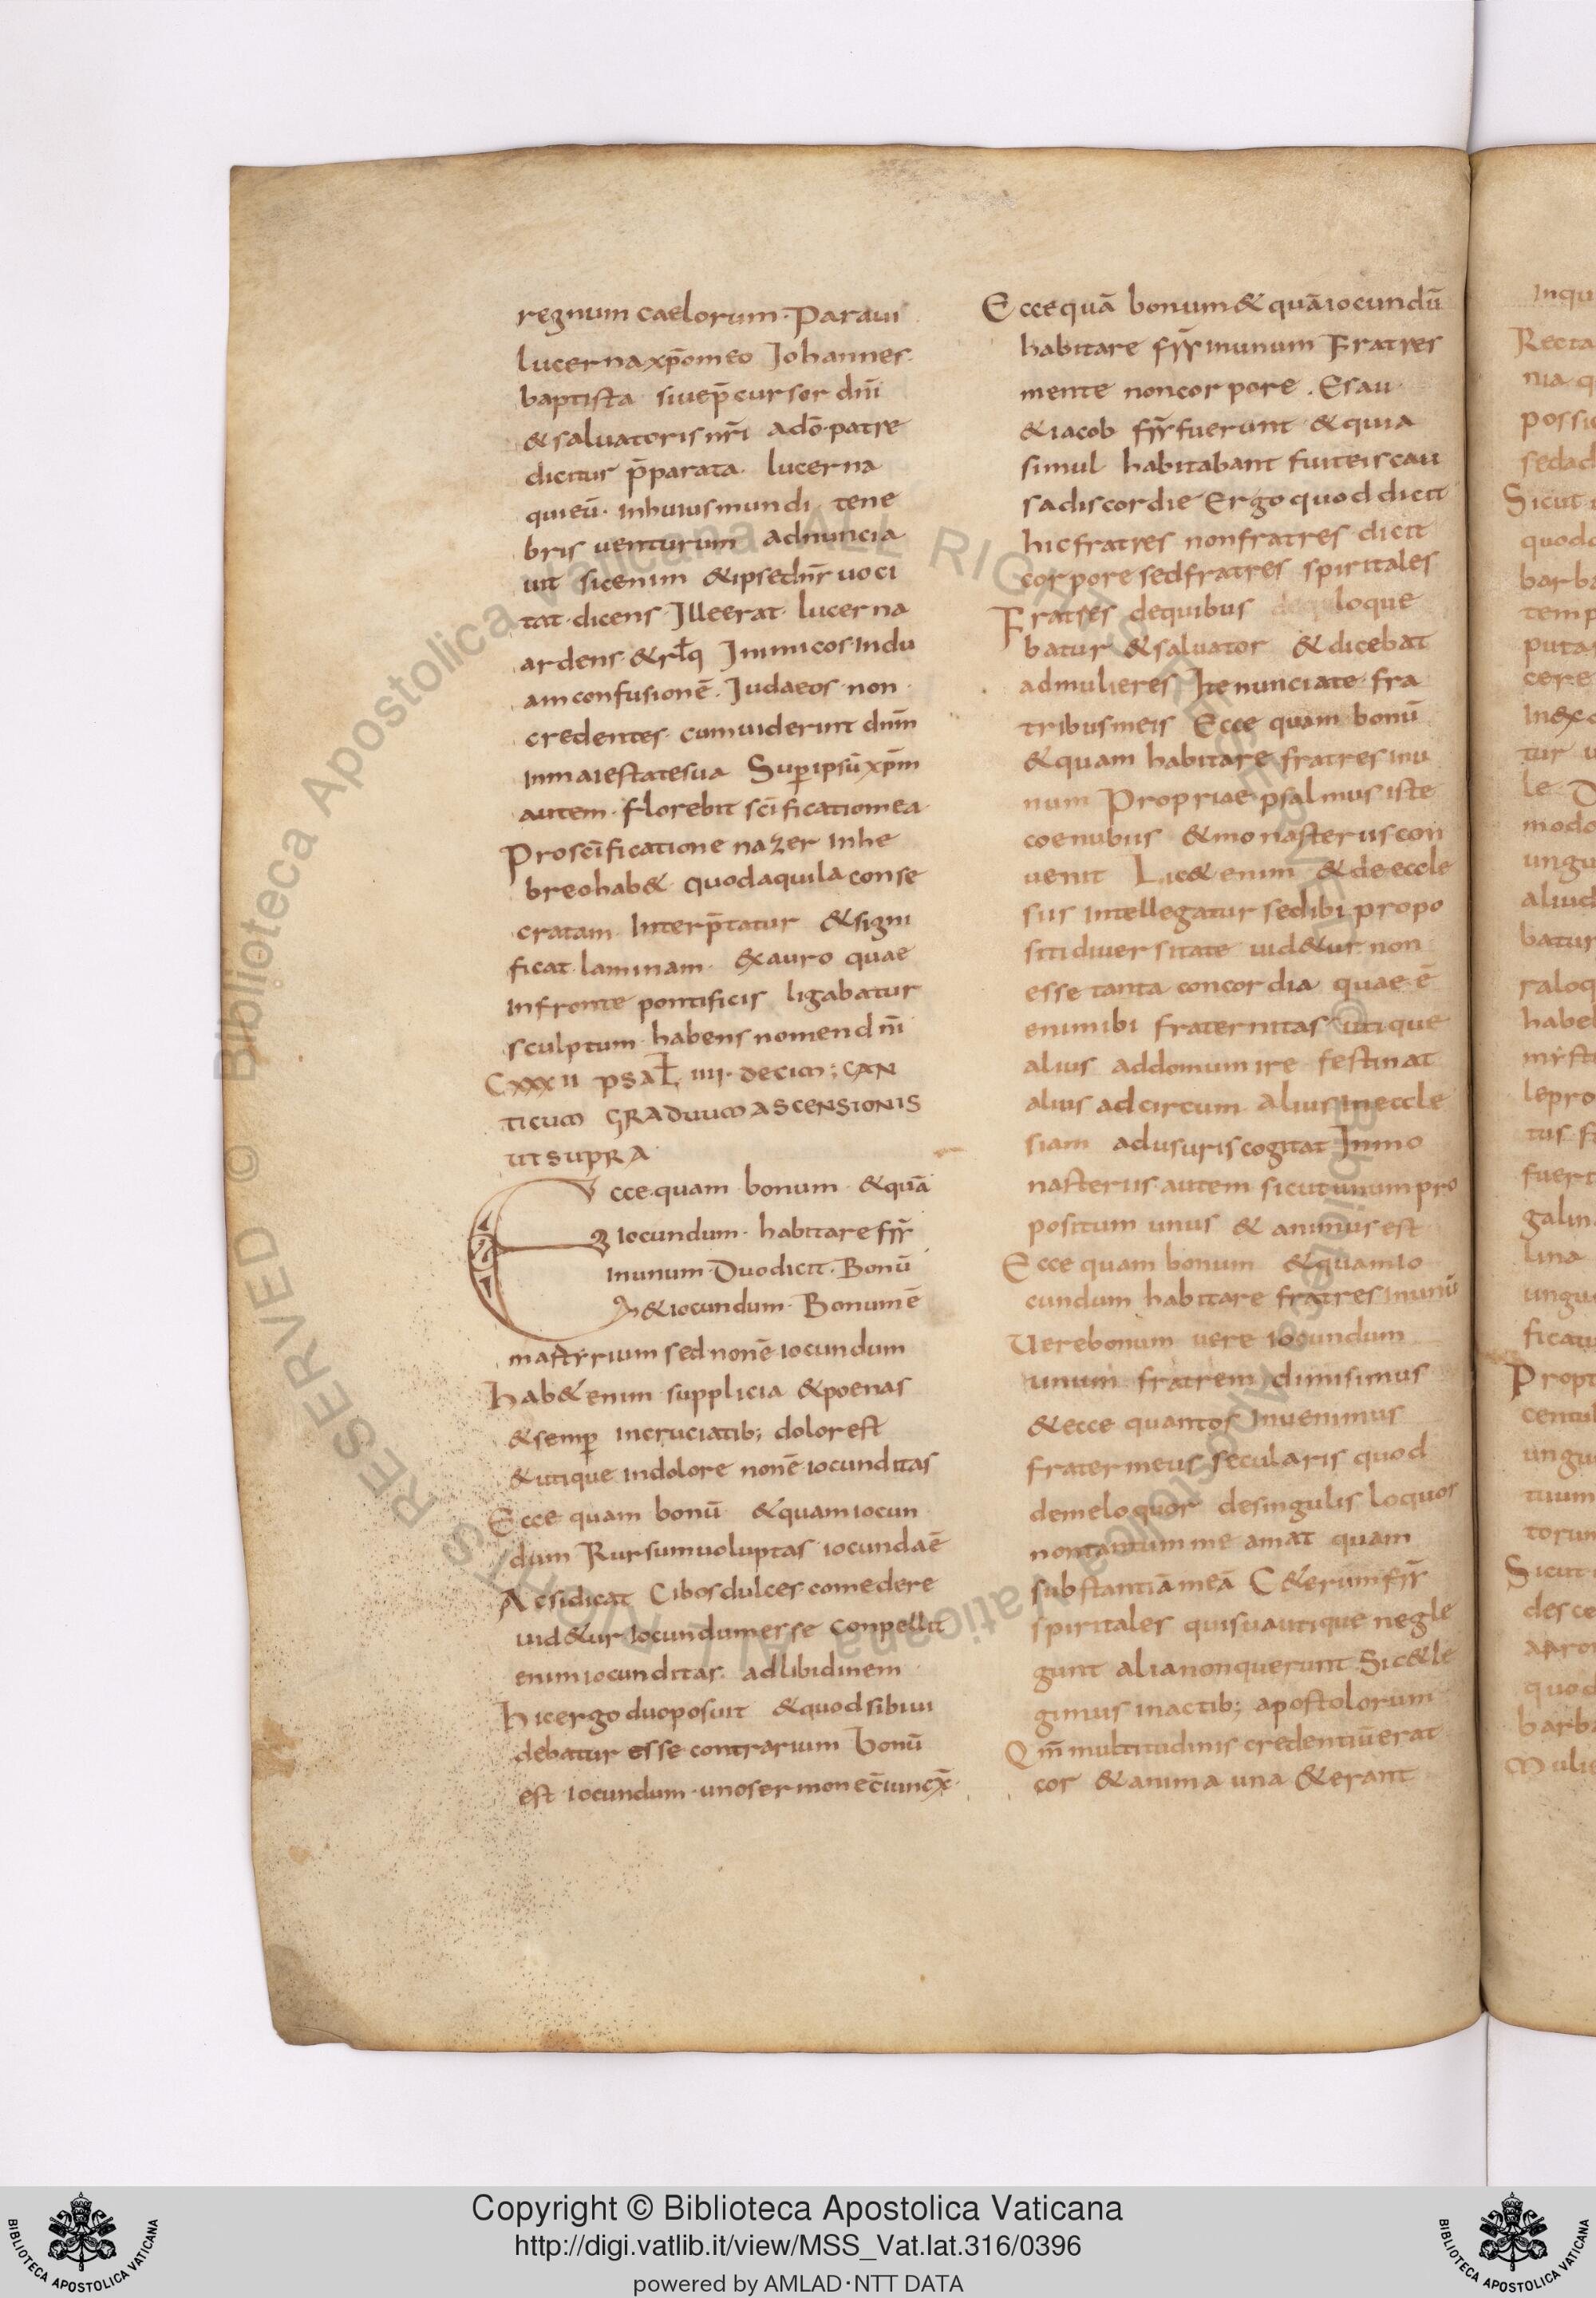 regnum caelorum · Paraui
lucernaxp̄omeo Johannes·
baptista siuep̄cursor dn̄i
&saluatorisnr̄i adō·patre
dicitur p̄parata· lucerna
quieū· inhuiusmundi tene
bris uenturum adnuncia
uit sicenim &ipsedn̄r uoci
tat·dicens· Jlleerat· lucerna
ardens·&rl̄q Jnimicos·indu
amconfusionē· Judaeos·non·
credentes· cumuiderint dn̄m
inmaiestatesua Sup̄ipsūxp̄m
autem· florebit sc̄ificatiomea·
Prosc̄ificatione nazer inhe
breohab& quodaquila conse
cratam· Interp̄tatur &signi
ficat·laminam· &xauro quae
infronte pontificis ligabatur
sculptum· habens nomendn̄i
Cxxxii psal̄ iiii· decim; can
ticum graduum ascensionis
ut supra
Ecce·quam·bonum· &quā
iocundum· habitare fr̄r̄
inunum· Duodicit· Bonū
&iocundum· Bonumē
martyrium sed nonē iocundum
hab&enim supplicia &poenas
&semp̄ incruciatib; dolor est
&utique indolore nonē iocunditas
Ecce quam bonū &quamiocun
dum Rursumuoluptas iocundaē
Acsidicat Cibosdulces·comedere
uid&ur Iocundumesse Conpellit
enimiocunditas· adlibidinem
hicergo duoposuit &quodsibiui
debatur esse contrarium bonū
est iocundum·unosermonec̄iuncx̄·
Eccequā bonum&quāiocundū
habitare fr̄r̄inunum Fratres
mente noncorpore · Esau
&iacob fr̄r̄fuerunt &quia
simul habitabant fuiteiscau
sadiscordie Ergo quod dicit
hicfratres nonfratres dicit
corpore sedfratres spiritales
Fratres dequibus loque
batur &saluator &dicebat
admulieres Ite nunciate·fra
tribusmeis Ecce quam bonū
&quam habitare fratres inu
num Propriae psalmus iste
coenubiis &monasteriis con
uenit Lic& enim &de eccle
siis intellegatur sedibi propo
siti diuersitate uid&ur non
esse tanta concordia quae·ē
enimibi fraternitas utique
alius addomum ire festinat
alius adcircum· aliusineccle
siam adusuris cogitat Inmo
nasteriis autem sicutunum pro
positum unus & animus est
Ecce quam bonum &quamio
cundum habitare fratres inunū
Uerebonum uere iocundum
unum fratrem dimisimus
&ecce quantos inuenimus
frater meus secularis quod
demeloquor desingulis loquor
nontantum me amat quam
substantiāmeā C&erumfr̄r̄
spiritales quisuautique negle
gunt alianonquerunt·Sic&le
gimus inactib; apostolorum
Qm̄ multitudinis credentiūerat
cor &anima una &erant
Copyright © Biblioteca Apostolica Vaticana
http://digi.vatlib.it/view/MSS_Vat.lat.316/0396
powered by AMLAD·NTT DATA